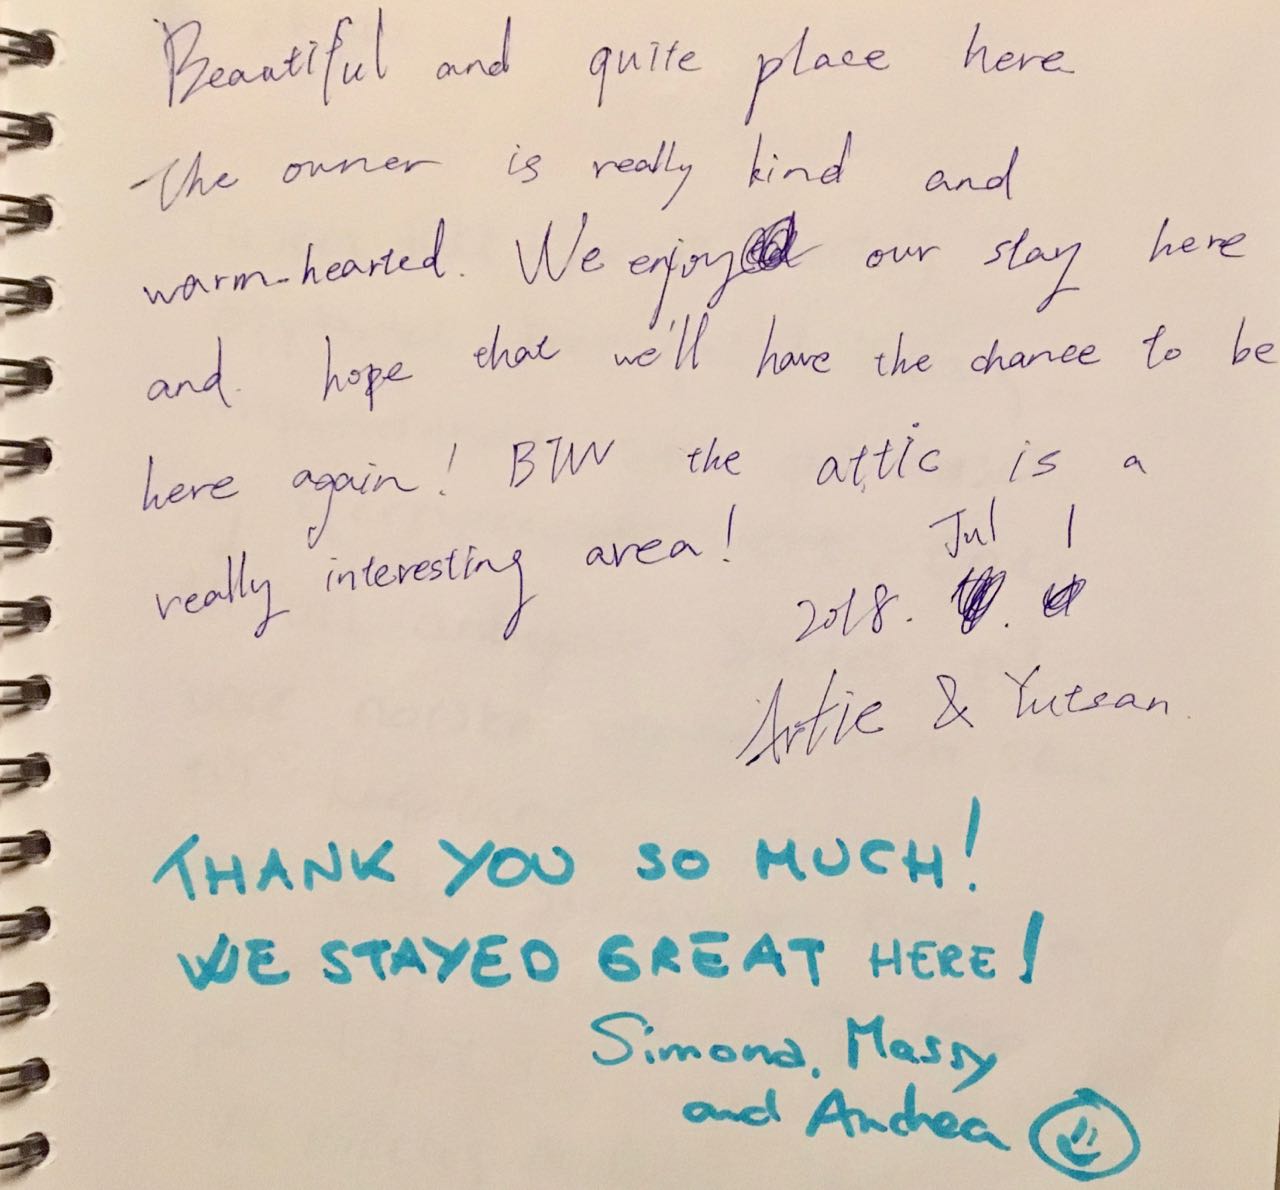 Beautiful and quite place here
The owner is really kind and
warm-hearted. We enjoyed our stay here
and hope that we'll have the chance to be
here again! BTW the attic is a
really interesting area!
Jul 1
2018.
Artie & Yutsan
THANK YOU SO MUCH!
WE STAYED GREAT HERE!
Simona, Massy
and Andrea